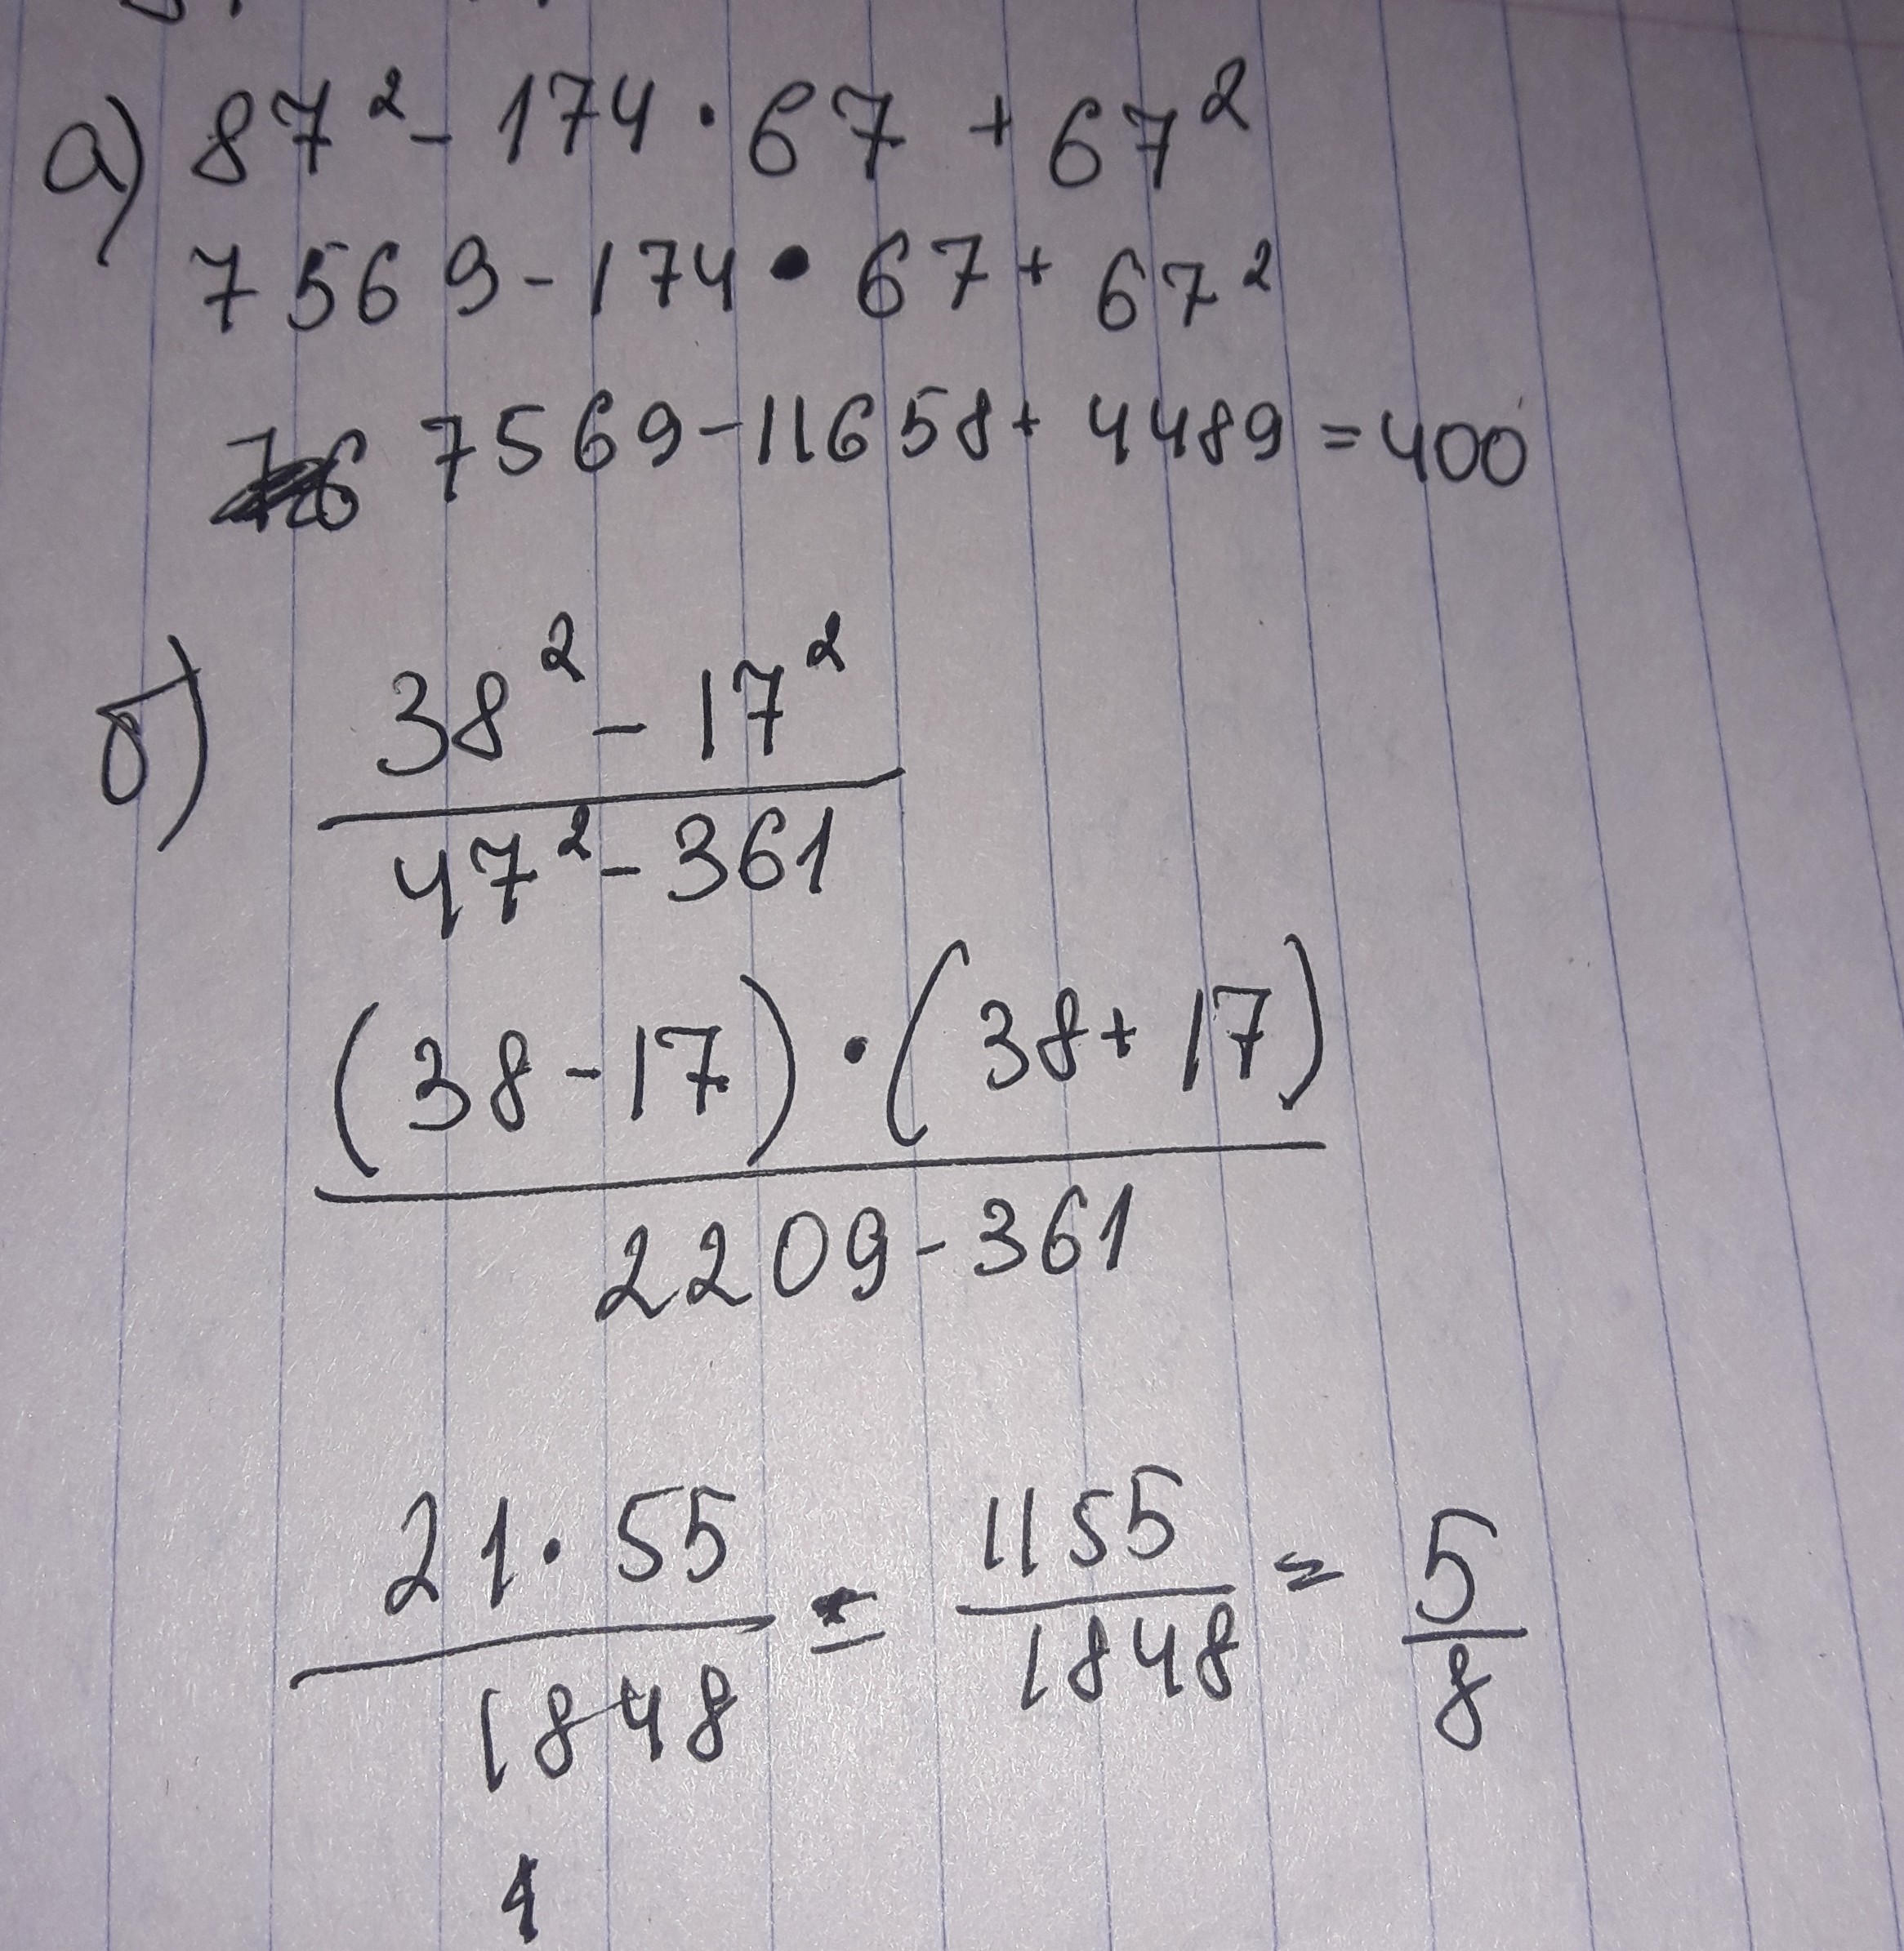 а) 87² - 174 · 67 + 67²
7569 - 174 · 67 + 67²
7569 - 11658 + 4489 = 400
б) 38² - 17²
47² - 361
(38 - 17) · (38 + 17)
2209 - 361
21 · 55 = 1155 = 5
1848 1848 8